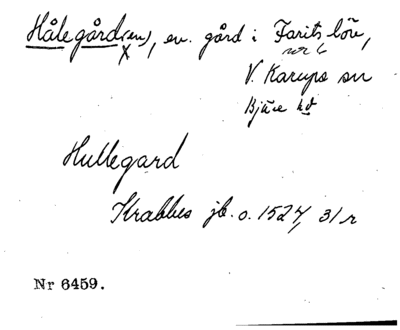 Hålegård(en), en. gård i Farits löv,
nr 6
V. Karups sn
Bjäre hd
x
Hullegard
Krabbes jb. o. 1524, 31 r
Nr 6459.